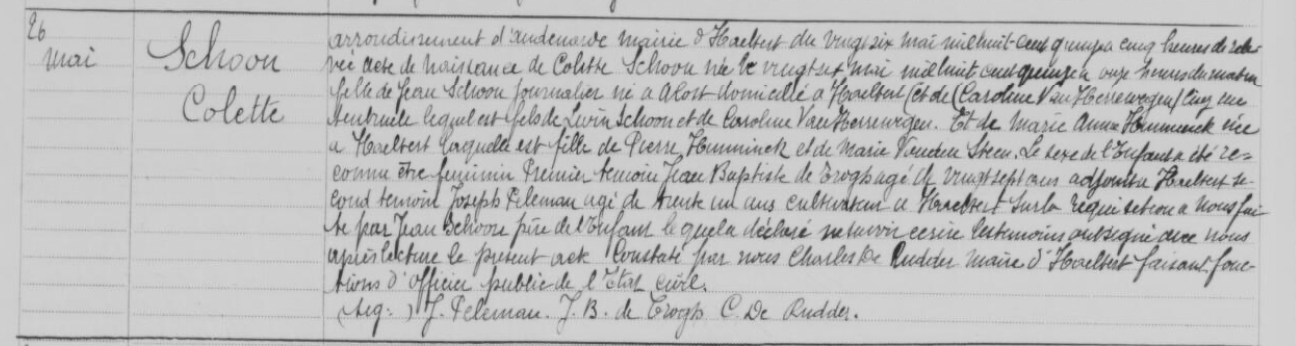 26
mai
Schoon
Colette
arrondissement d'audenarde mairie d'Haeltert du vingt six mai mil huit cent quinze a cinq heures de rele-
vée acte de naissance de Colette Schoon née le vingt six mai mil huit cent quinze a onze heures du matin
fille de Jean Schoon journalier né a Alost domicilié a Haeltert (et de (Caroline Van Herrewegen)
lequel est fils de Livin Schoon et de Caroline Van Herrewegen. Et de Marie Anne Humminck née
a Haeltert laquelle est fille de Pierre Humminck et de Marie Vanden Steen. Le sexe de l'Enfant a été re-
connu être feminin Premier temoin Jean Baptiste de Trogh agé de vingt sept ans adjoint a Haeltert se-
cond temoin Joseph Peleman agé de trente un ans cultivateur a Haeltert Sur la requisition a nous fai
te par Jean Schoon père de l'Enfant lequel a déclaré ne savoir ecrire les temoins ont signé avec nous
après lecture le present acte Constaté par nous Charles De Rudder maire d'Haeltert faisant fonc-
tions d'officier public de l'Etat civil.
(Sig:) J. Peleman. J. B. de Trogh C. De Rudder.